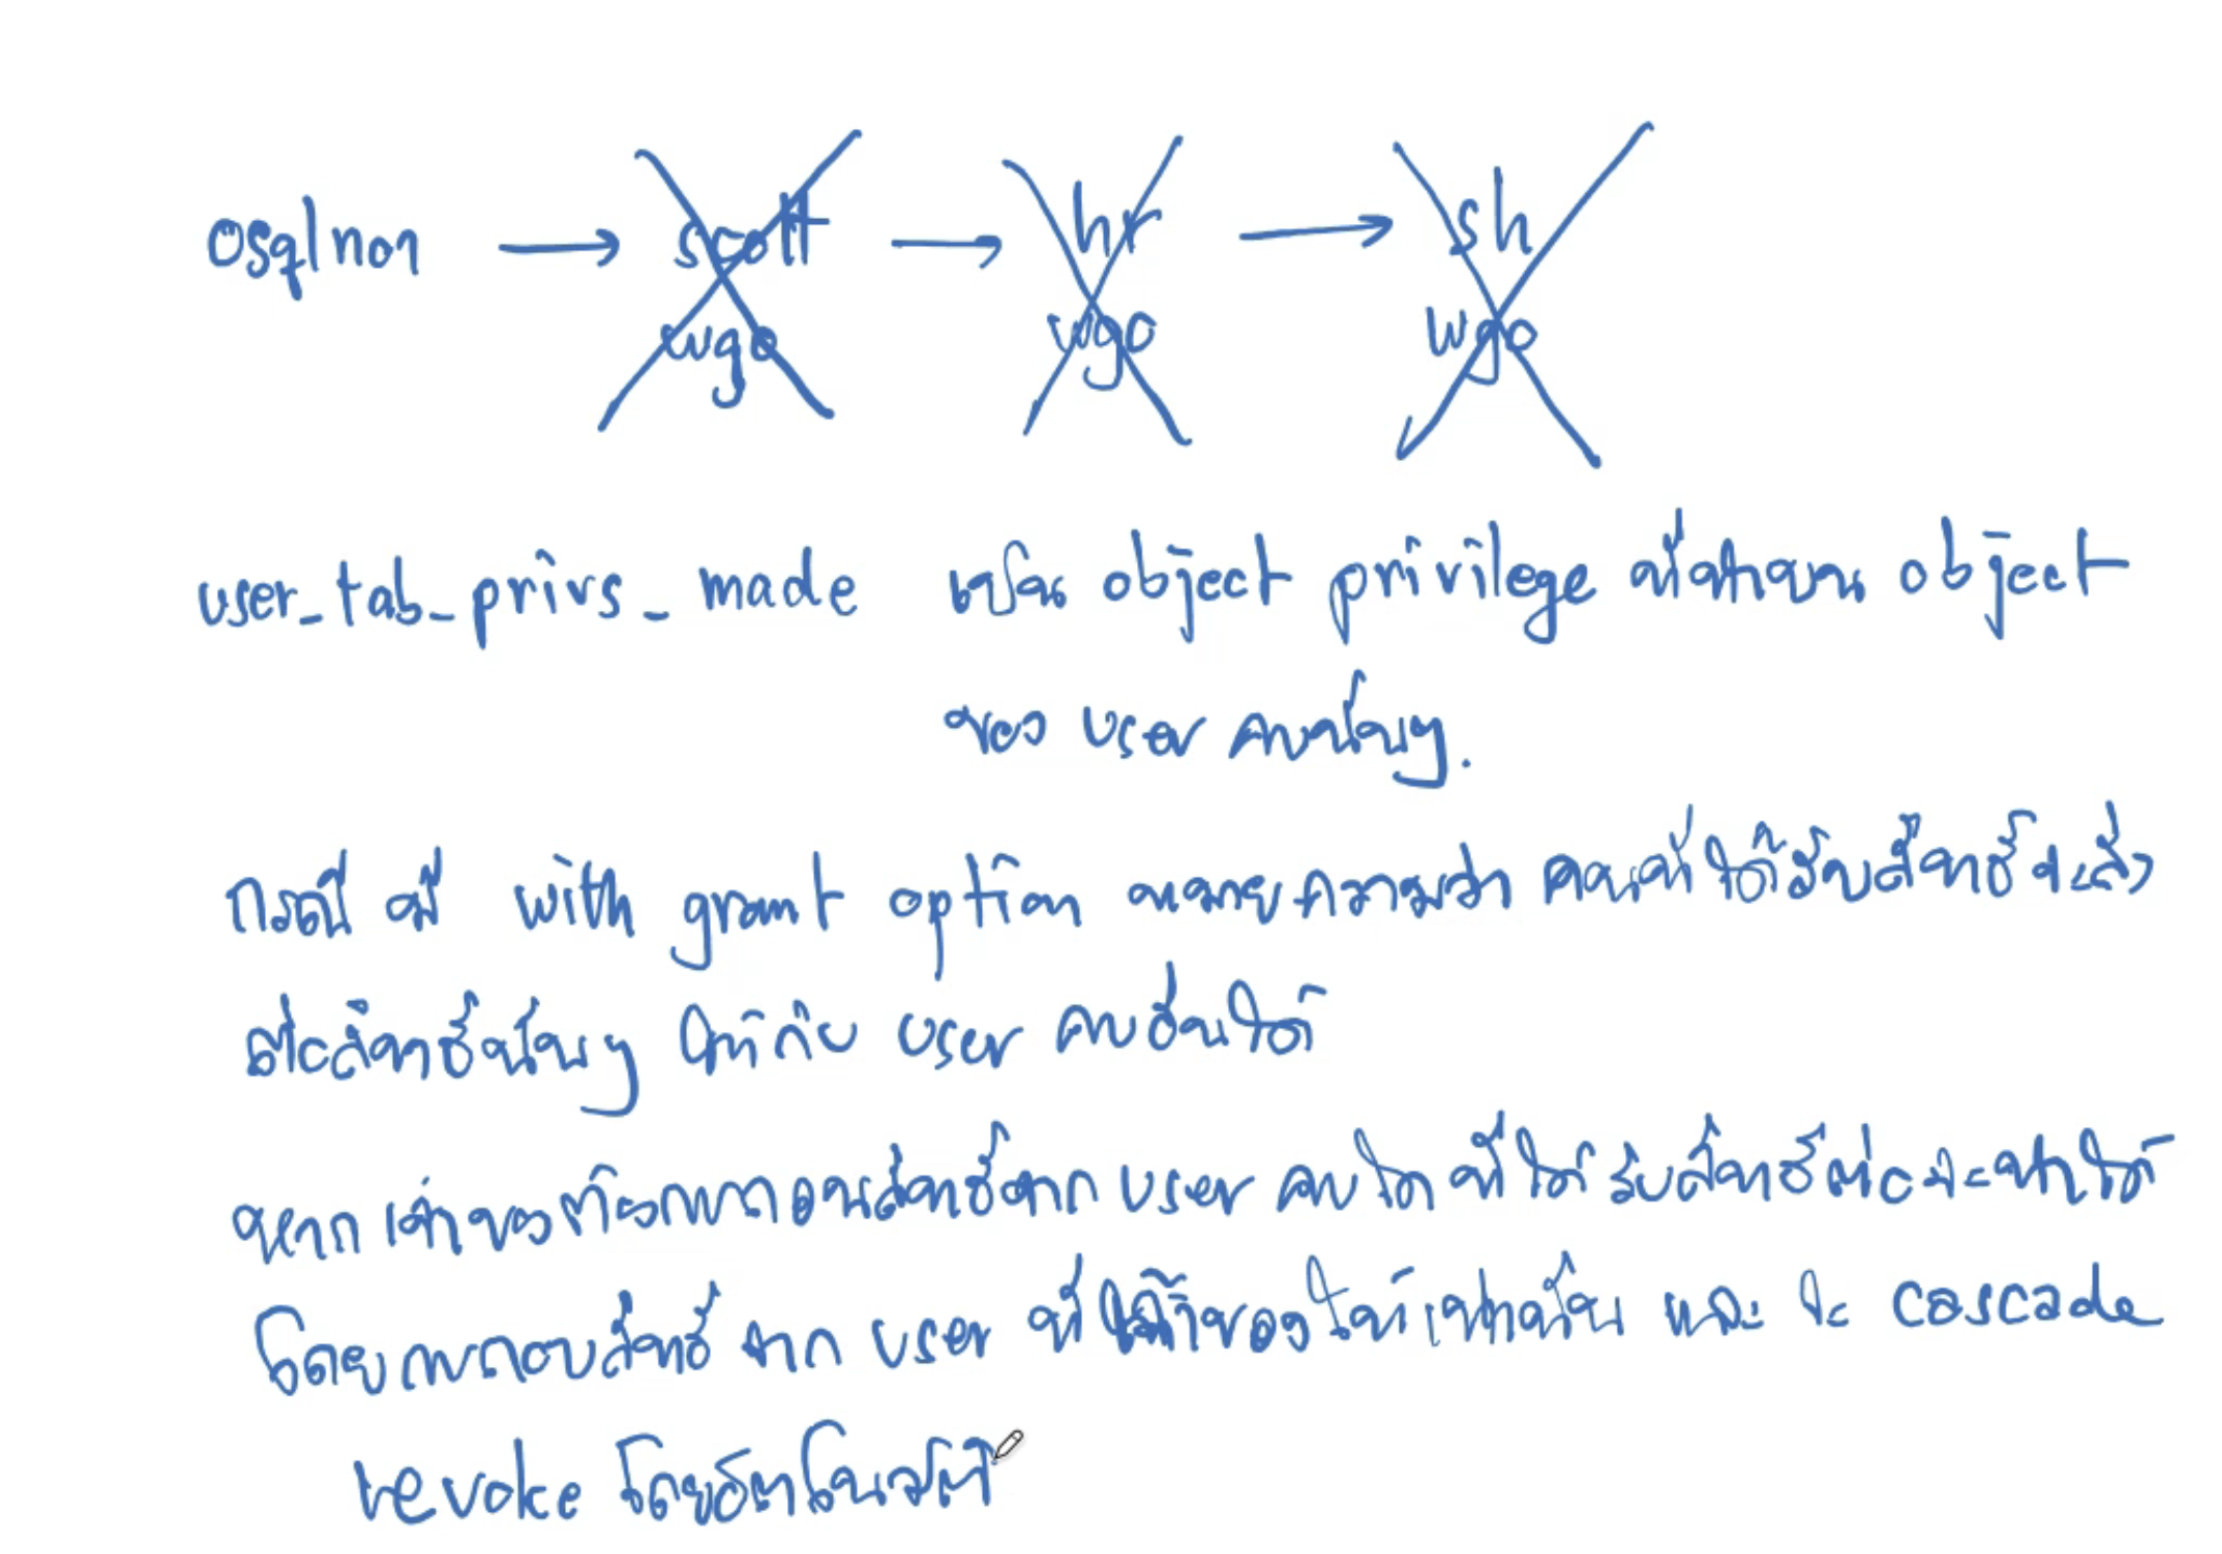 osqlnon → scott → hr → sh
wgo wgo wgo
user_tab_privs_made เป็น object privilege ที่ทำบน object
ของ user คนนั้นๆ.
กรณี มี with grant option หมายความว่า คนที่ได้รับสิทธิ์จะส่ง
ต่อสิทธิ์นั้นๆ ให้กับ user คนอื่นได้
หากเจ้าของต้องการถอนสิทธิ์จาก user คนใดที่ได้รับสิทธิ์ต่อจะทำได้
โดยการถอนสิทธิ์จาก user ที่เจ้าของให้เท่านั้น และจะ cascade
revoke โดยอัตโนมัติ